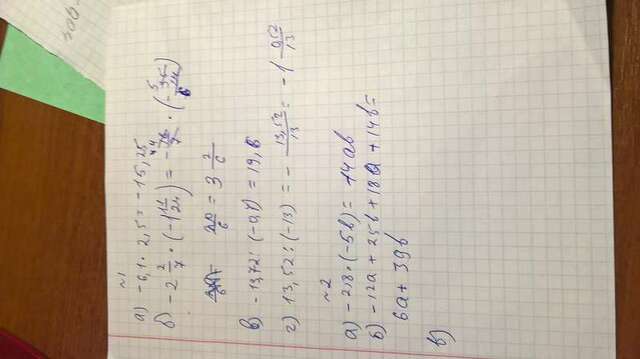 ~1
а) -6,1 · 2,5 = -15,25
б) -2 2/7 · (-1 11/24) = - 16/7 · (- 35/24)
20/6 = 3 2/6
в) -13,72 : (-0,7) = 19,6
г) 13,52 : (-13) = - 13,52/13 = -1 0,52/13
~2
а) -2,8 · (-5b) = 14ab
б) -12a + 25b + 18a + 14b =
6a + 39b
в)